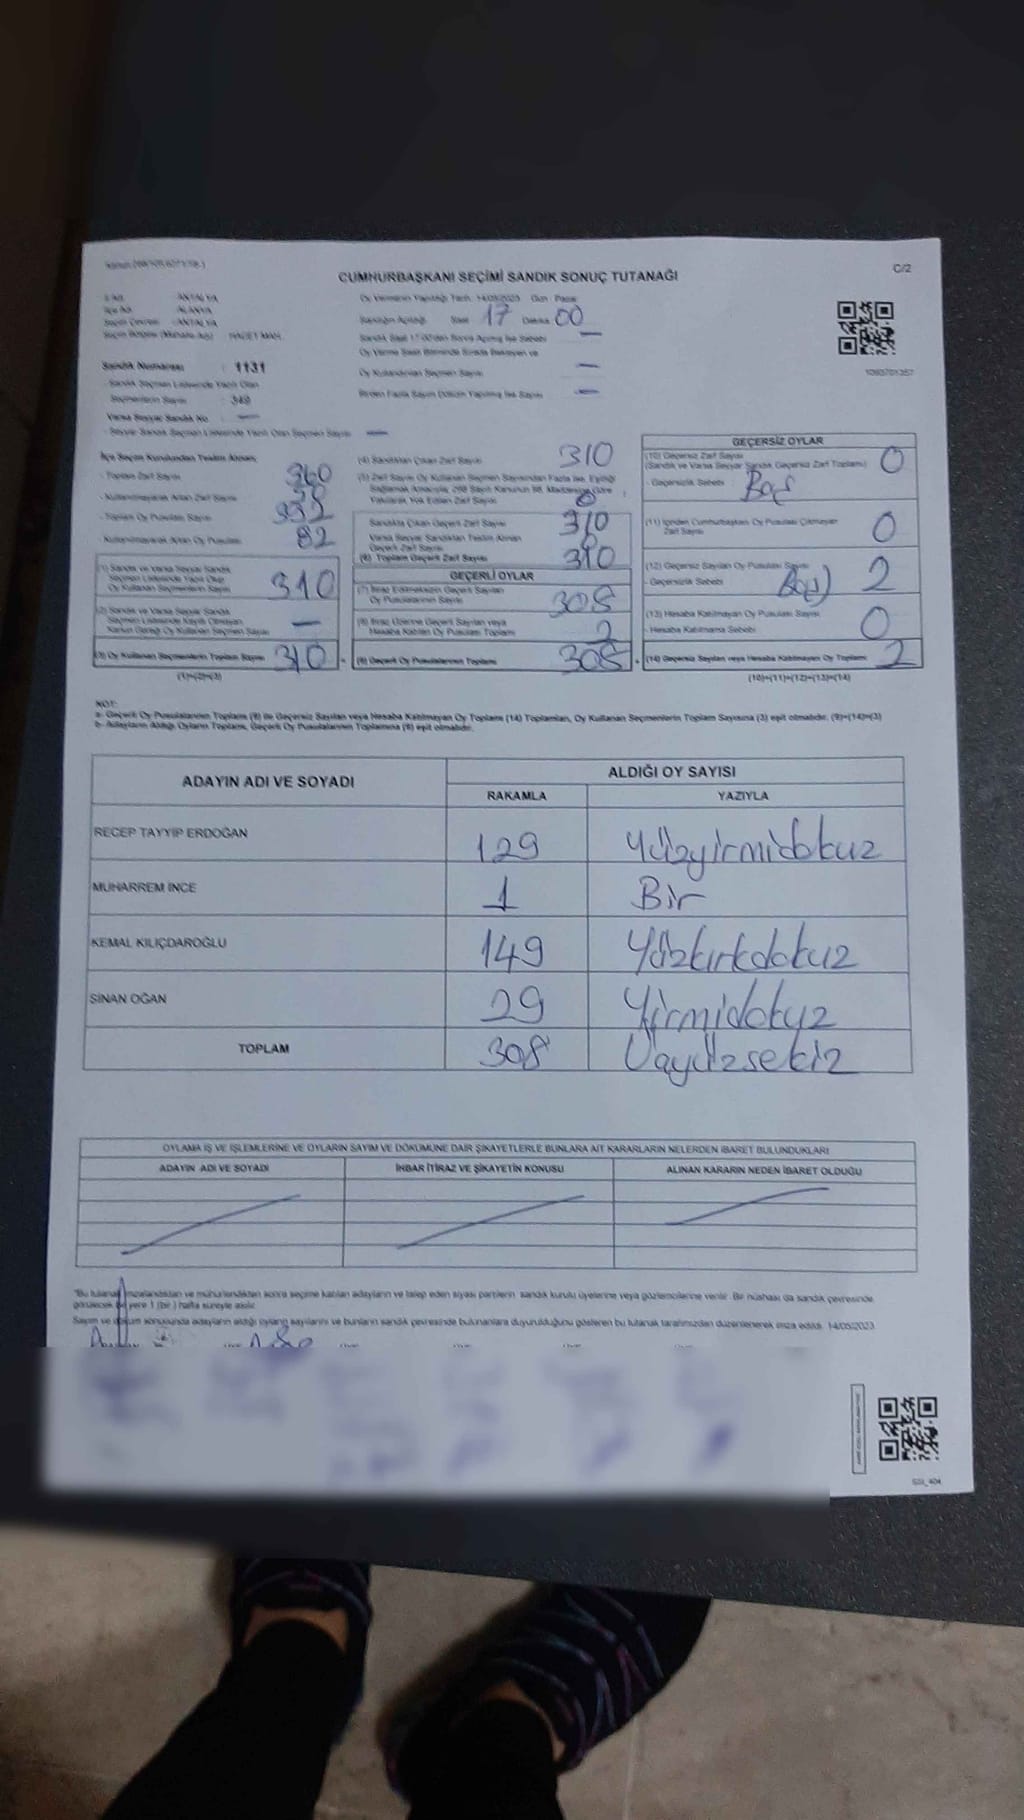 CUMHURBAŞKANI SEÇİMİ SANDIK SONUÇ TUTANAĞI
C/2
İli Adı : ANTALYA
İlçe Adı : ALANYA
Seçim Çevresi : ANTALYA
Sandık Numarası : 1131
Sandık Seçmen Listesinde Yazılı Olan
Seçmenlerin Sayısı : 349
Varsa Seyyar Sandık No : —
Seyyar Sandık Seçmen Listesinde Yazılı Olan Seçmen Sayısı —
Oy Vermenin Yapıldığı Tarih 14/05/2023 Gün Pazar
Sandığın Açıldığı Saat 17 Dakika 00
Sandık Saat 17:00'den Sonra Açılmış İse Sebebi —
Oy Verme Saati Bitiminde Sırada Bekleyen ve
Oy Kullandırılan Seçmen Sayısı —
Birden Fazla Sayım Döküm Yapılmış İse Sayısı —
1093701357
İlçe Seçim Kurulundan Teslim Alınan;
- Toplam Zarf Sayısı 360
- Kullanılmayarak Artan Zarf Sayısı
- Toplam Oy Pusulası Sayısı
- Kullanılmayarak Artan Oy Pusulası 82
(1) Sandık ve Varsa Seyyar Sandık
Seçmen Listesinde Yazılı Olup
Oy Kullanan Seçmenlerin Sayısı 310
(2) Sandık ve Varsa Seyyar Sandık
Seçmen Listesinde Kayıtlı Olmayan
Kanun Gereği Oy Kullanan Seçmen Sayısı —
(3) Oy Kullanan Seçmenlerin Toplam Sayısı 310
(1)+(2)=(3)
(4) Sandıktan Çıkan Zarf Sayısı 310
(5) Zarf Sayısı Oy Kullanan Seçmen Sayısından Fazla İse, Eşitliği
Sağlamak Amacıyla, 298 Sayılı Kanunun 98. Maddesine Göre
Yakılarak Yok Edilen Zarf Sayısı 0
Sandıkta Çıkan Geçerli Zarf Sayısı 310
Varsa Seyyar Sandıktan Teslim Alınan
Geçerli Zarf Sayısı
(6) Toplam Geçerli Zarf Sayısı 310
GEÇERLİ OYLAR
(7) İtiraz Edilmeksizin Geçerli Sayılan
Oy Pusulalarının Sayısı 308
(8) İtiraz Üzerine Geçerli Sayılan veya
Hesaba Katılan Oy Pusulası Toplamı 2
(9) Geçerli Oy Pusulalarının Toplamı 308
GEÇERSİZ OYLAR
(10) Geçersiz Zarf Sayısı
(Sandık ve Varsa Seyyar Sandık Geçersiz Zarf Toplamı) 0
- Geçersizlik Sebebi : Boş
(11) İçinden Cumhurbaşkanı Oy Pusulası Çıkmayan
Zarf Sayısı 0
(12) Geçersiz Sayılan Oy Pusulası Sayısı 2
- Geçersizlik Sebebi : Boş
(13) Hesaba Katılmayan Oy Pusulası Sayısı 0
- Hesaba Katılmama Sebebi :
(14) Geçersiz Sayılan veya Hesaba Katılmayan Oy Toplamı 2
(10)+(11)+(12)+(13)=(14)
NOT:
a- Geçerli Oy Pusulalarının Toplamı (9) ile Geçersiz Sayılan veya Hesaba Katılmayan Oy Toplamı (14) Toplamları, Oy Kullanan Seçmenlerin Toplam Sayısına (3) eşit olmalıdır. (9)+(14)=(3)
b- Adayların Aldığı Oyların Toplamı, Geçerli Oy Pusulalarının Toplamına (9) eşit olmalıdır.
ADAYIN ADI VE SOYADI
ALDIĞI OY SAYISI
RAKAMLA YAZIYLA
RECEP TAYYİP ERDOĞAN 129 Yüzyirmidokuz
MUHARREM İNCE 1 Bir
KEMAL KILIÇDAROĞLU 149 Yüzkırkdokuz
SİNAN OĞAN 29 Yirmidokuz
TOPLAM 308 Üçyüzsekiz
OYLAMA İŞ VE İŞLEMLERİNE VE OYLARIN SAYIM VE DÖKÜMÜNE DAİR ŞİKAYETLERLE BUNLARA AİT KARARLARIN NELERDEN İBARET BULUNDUKLARI
ADAYIN ADI VE SOYADI İHBAR İTİRAZ VE ŞİKAYETİN KONUSU ALINAN KARARIN NEDEN İBARET OLDUĞU
"Bu tutanak imzalandıktan ve mühürlendikten sonra seçime katılan adayların ve talep eden siyasi partilerin sandık kurulu üyelerine veya gözlemcilerine verilir. Bir nüshası da sandık çevresinde
görülecek bir yere 1 (bir ) hafta süreyle asılır.
Sayım ve döküm sonucunda adayların aldığı oyların sayılarını ve bunların sandık çevresinde bulunanlara duyurulduğunu gösteren bu tutanak tarafımızdan düzenlenerek imza edildi. 14/05/2023